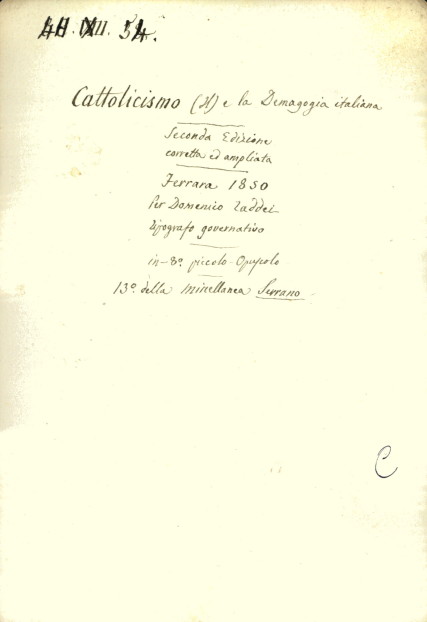 54.
Cattolicismo (Il) e la Demagogia italiana
Seconda Edizione
corretta ed ampliata
Ferrara 1850
Per Domenico Taddei
Tipografo governativo
in-8º piccolo-Opuscolo
13º della Miscellanea Serrano
C